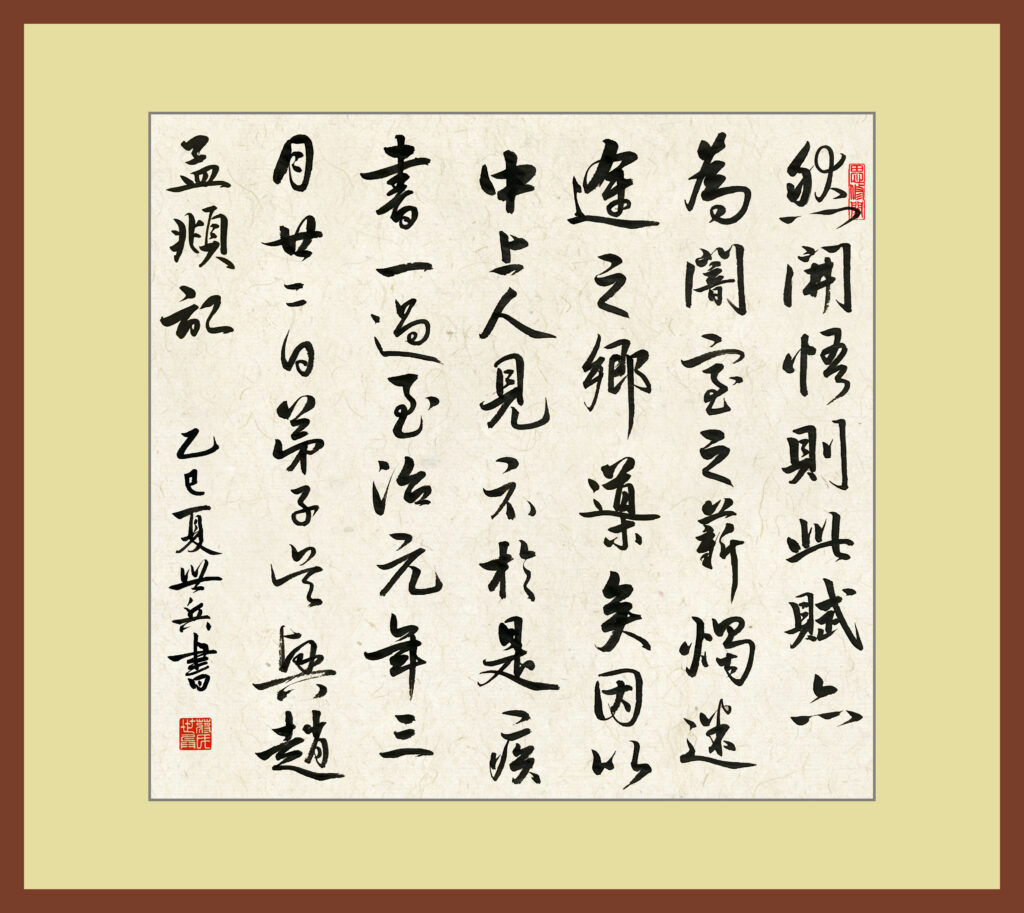 然開悟則此賦亦
為闇室之薪燭迷
途之鄉導矣因以
中上人見示於是疾
書一過至治元年三
月廿二日弟子吳興趙
孟頫記
乙巳夏世兵書